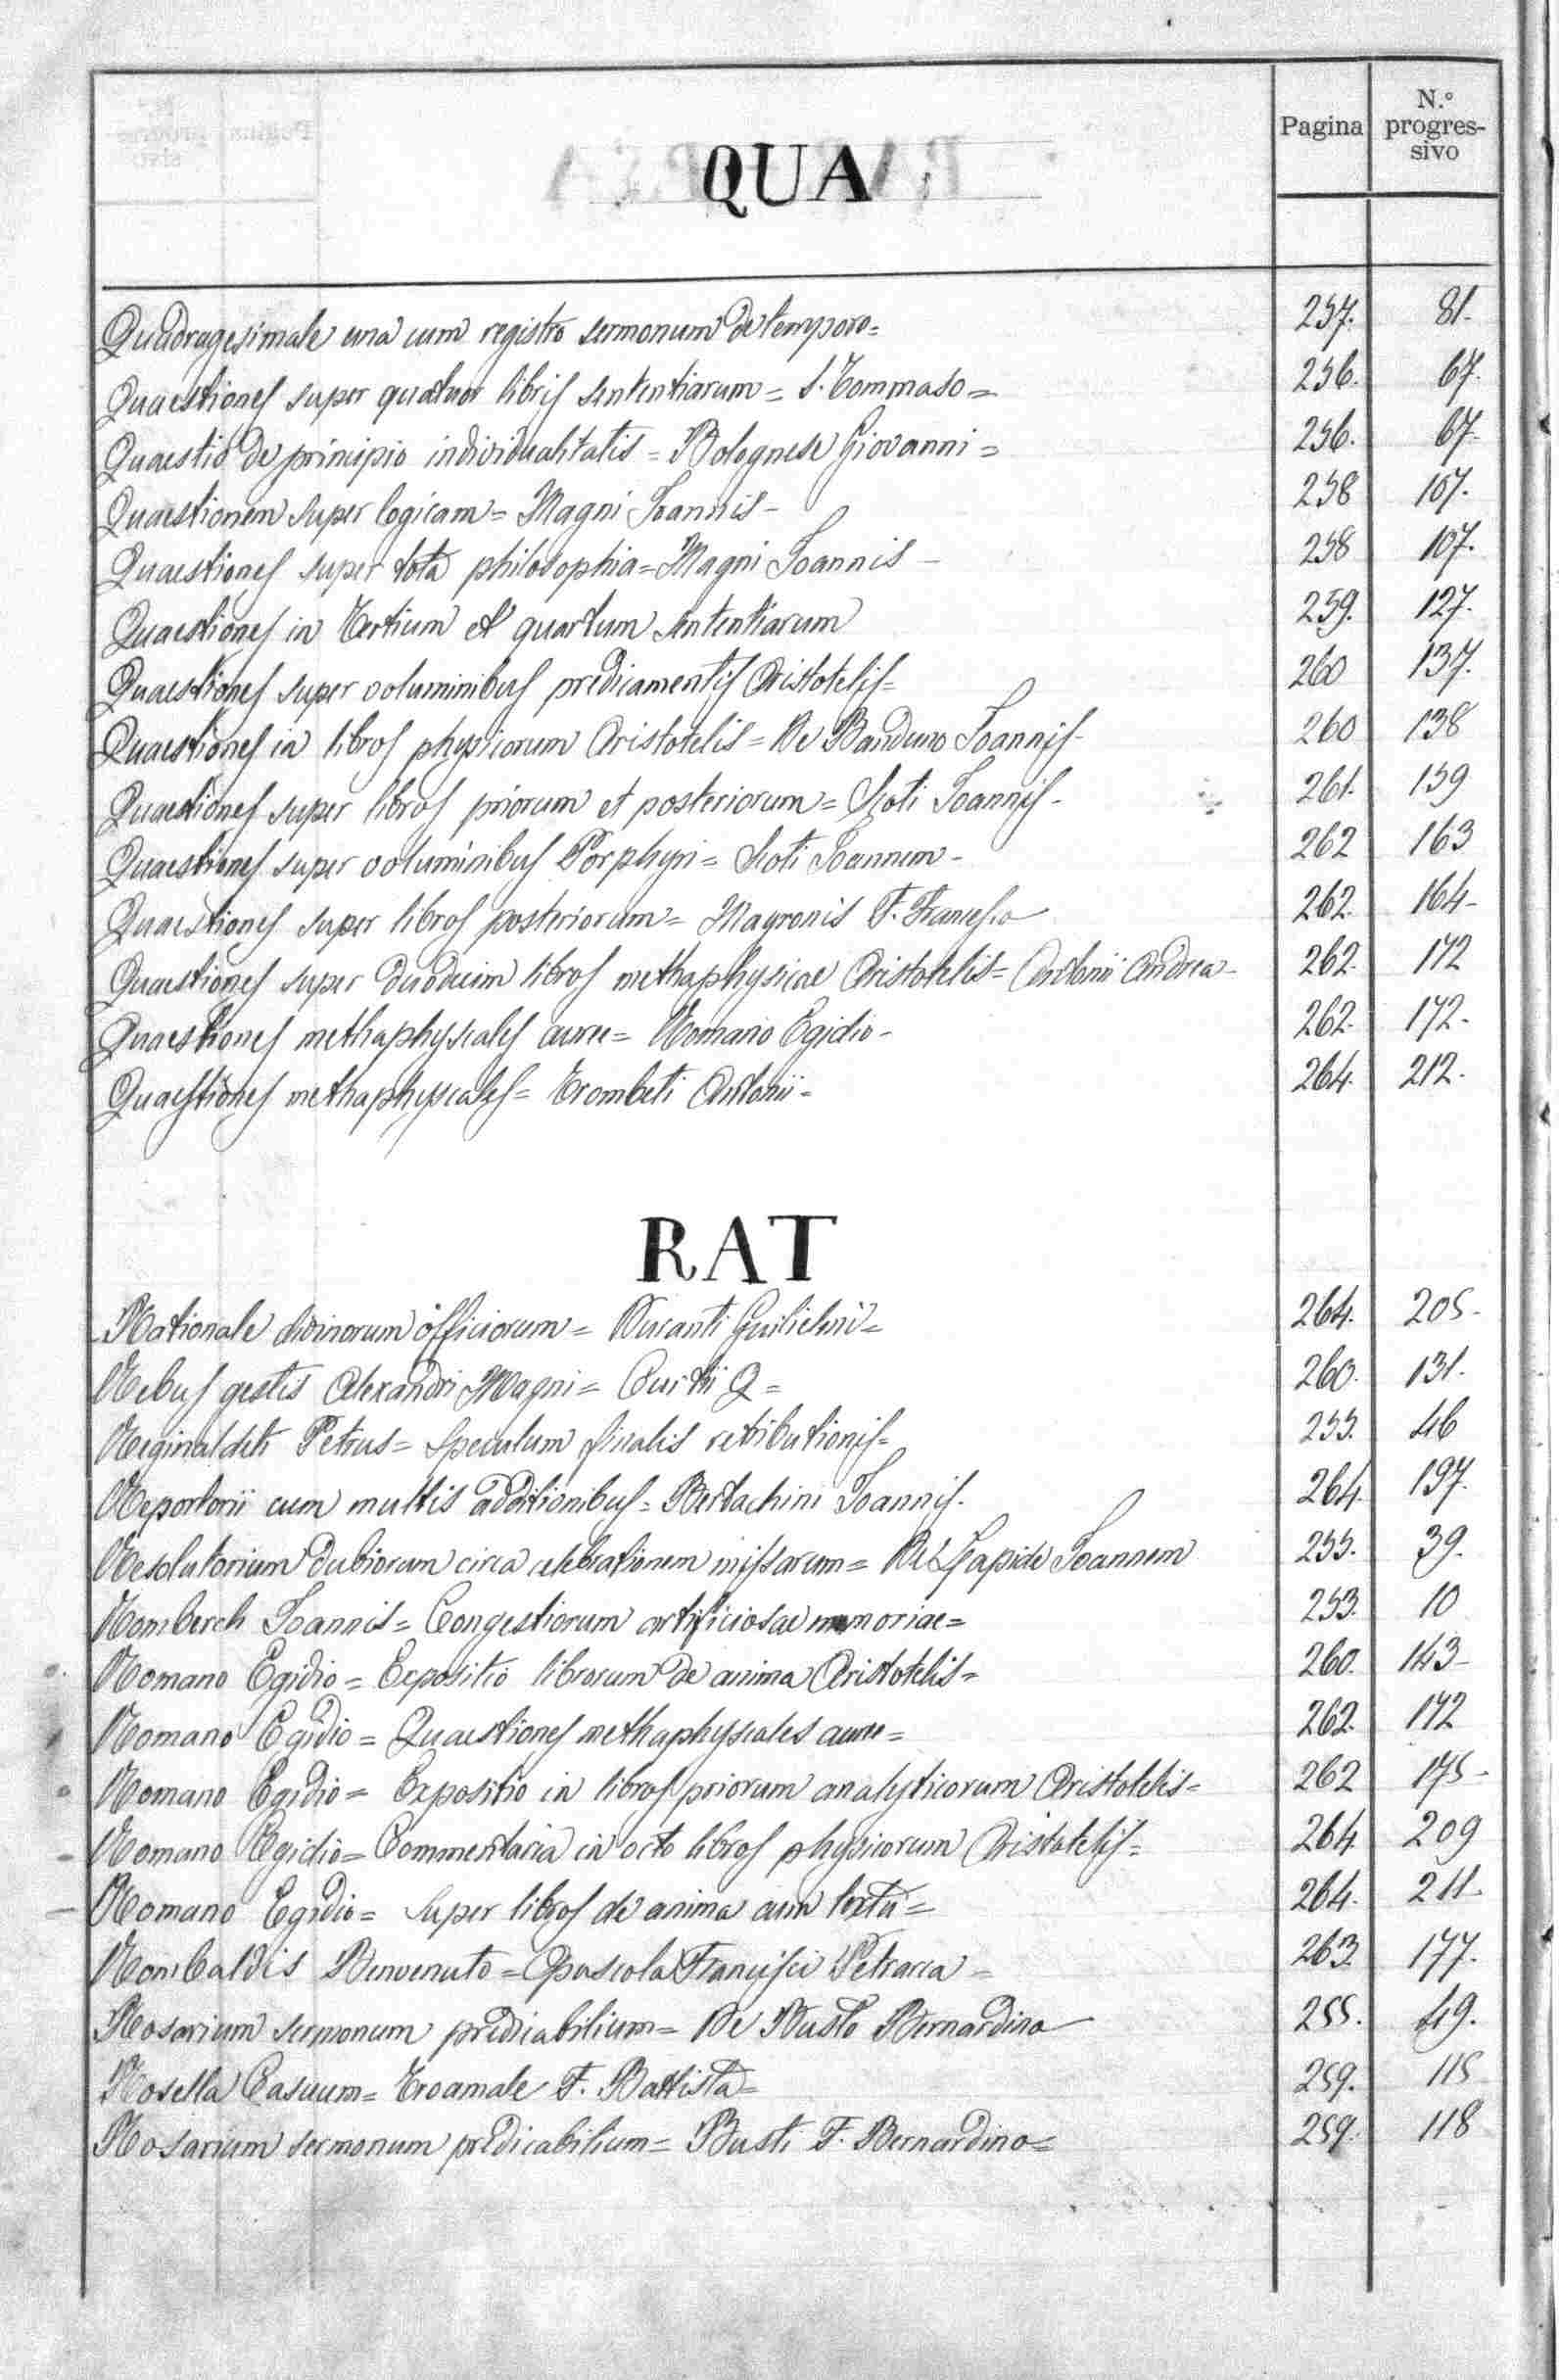 Pagina N.° progres-sivo
QUA
Quadragesimale una cum registro sermonum de tempore= 257. 81.
Quaestiones super quatuor libris sententiarum = S. Tommaso = 256. 67.
Quaestio de principio individualitatis = Bolognese Giovanni = 256. 67.
Quaestionem super logicam = Magni Joannis - 258 107.
Quaestiones super tota philosophia = Magni Joannis - 258 107.
Quaestiones in tertium et quartum sententiarum 259. 127.
Quaestiones super voluminibus predicamentis Aristotelis= 260 137.
Quaestiones in libros physicorum Aristotelis = De Banduno Joannis- 260 138
Quaestiones super libros priorum et posteriorum = Scoti Joannis- 261. 159
Quaestiones super voluminibus Porphyri = Scoti Joannem - 262 163
Quaestiones super libros posteriorum = Mayronis F. Francesco 262. 164-
Quaestiones super duodecim libros methaphysicae Aristotelis = Antonii Andrea- 262. 172
Quaestiones methaphyscales auree = Romano Egidio - 262. 172.
Quaestiones methaphyscales = Trombeti Antonii - 264. 212.
RAT
Rationale divinorum officiorum = Duranti Guilielmi = 264. 205.
Rebus gestis Alexandri Magni = Curtii Q = 260. 131.
Reginaldeti Petrus = Speculum finalis retributionis= 255. 46
Repertorii cum multis additionibus = Bertachini Joannis. 264. 197.
Resolutorium dubiorum circa celebrationem missarum = De Lapide Joannem 255. 39.
Romberch Joannis = Congestiorum artificiosae memoriae = 253. 10
Romano Egidio = Expositio librorum de anima Aristotelis = 260. 143-
Romano Egidio = Quaestiones methaphyscales auree = 262. 172
Romano Egidio = Expositio in libros priorum analyticorum Aristotelis = 262 175-
Romano Egidio = Commentaria in octo libros physicorum Aristotelis = 264 209
Romano Egidio = Super libros de anima cum textu = 264. 211-
Rombaldis Benvenuto = Opuscola Francisci Petrarca = 263. 177.
Rosarium sermonum predicabilium = De Busto Bernardino 255. 49.
Rosella Casuum = Troamale F. Battista = 259. 115
Rosarium sermonum predicabilium = Busti F. Bernardino = 259. 118